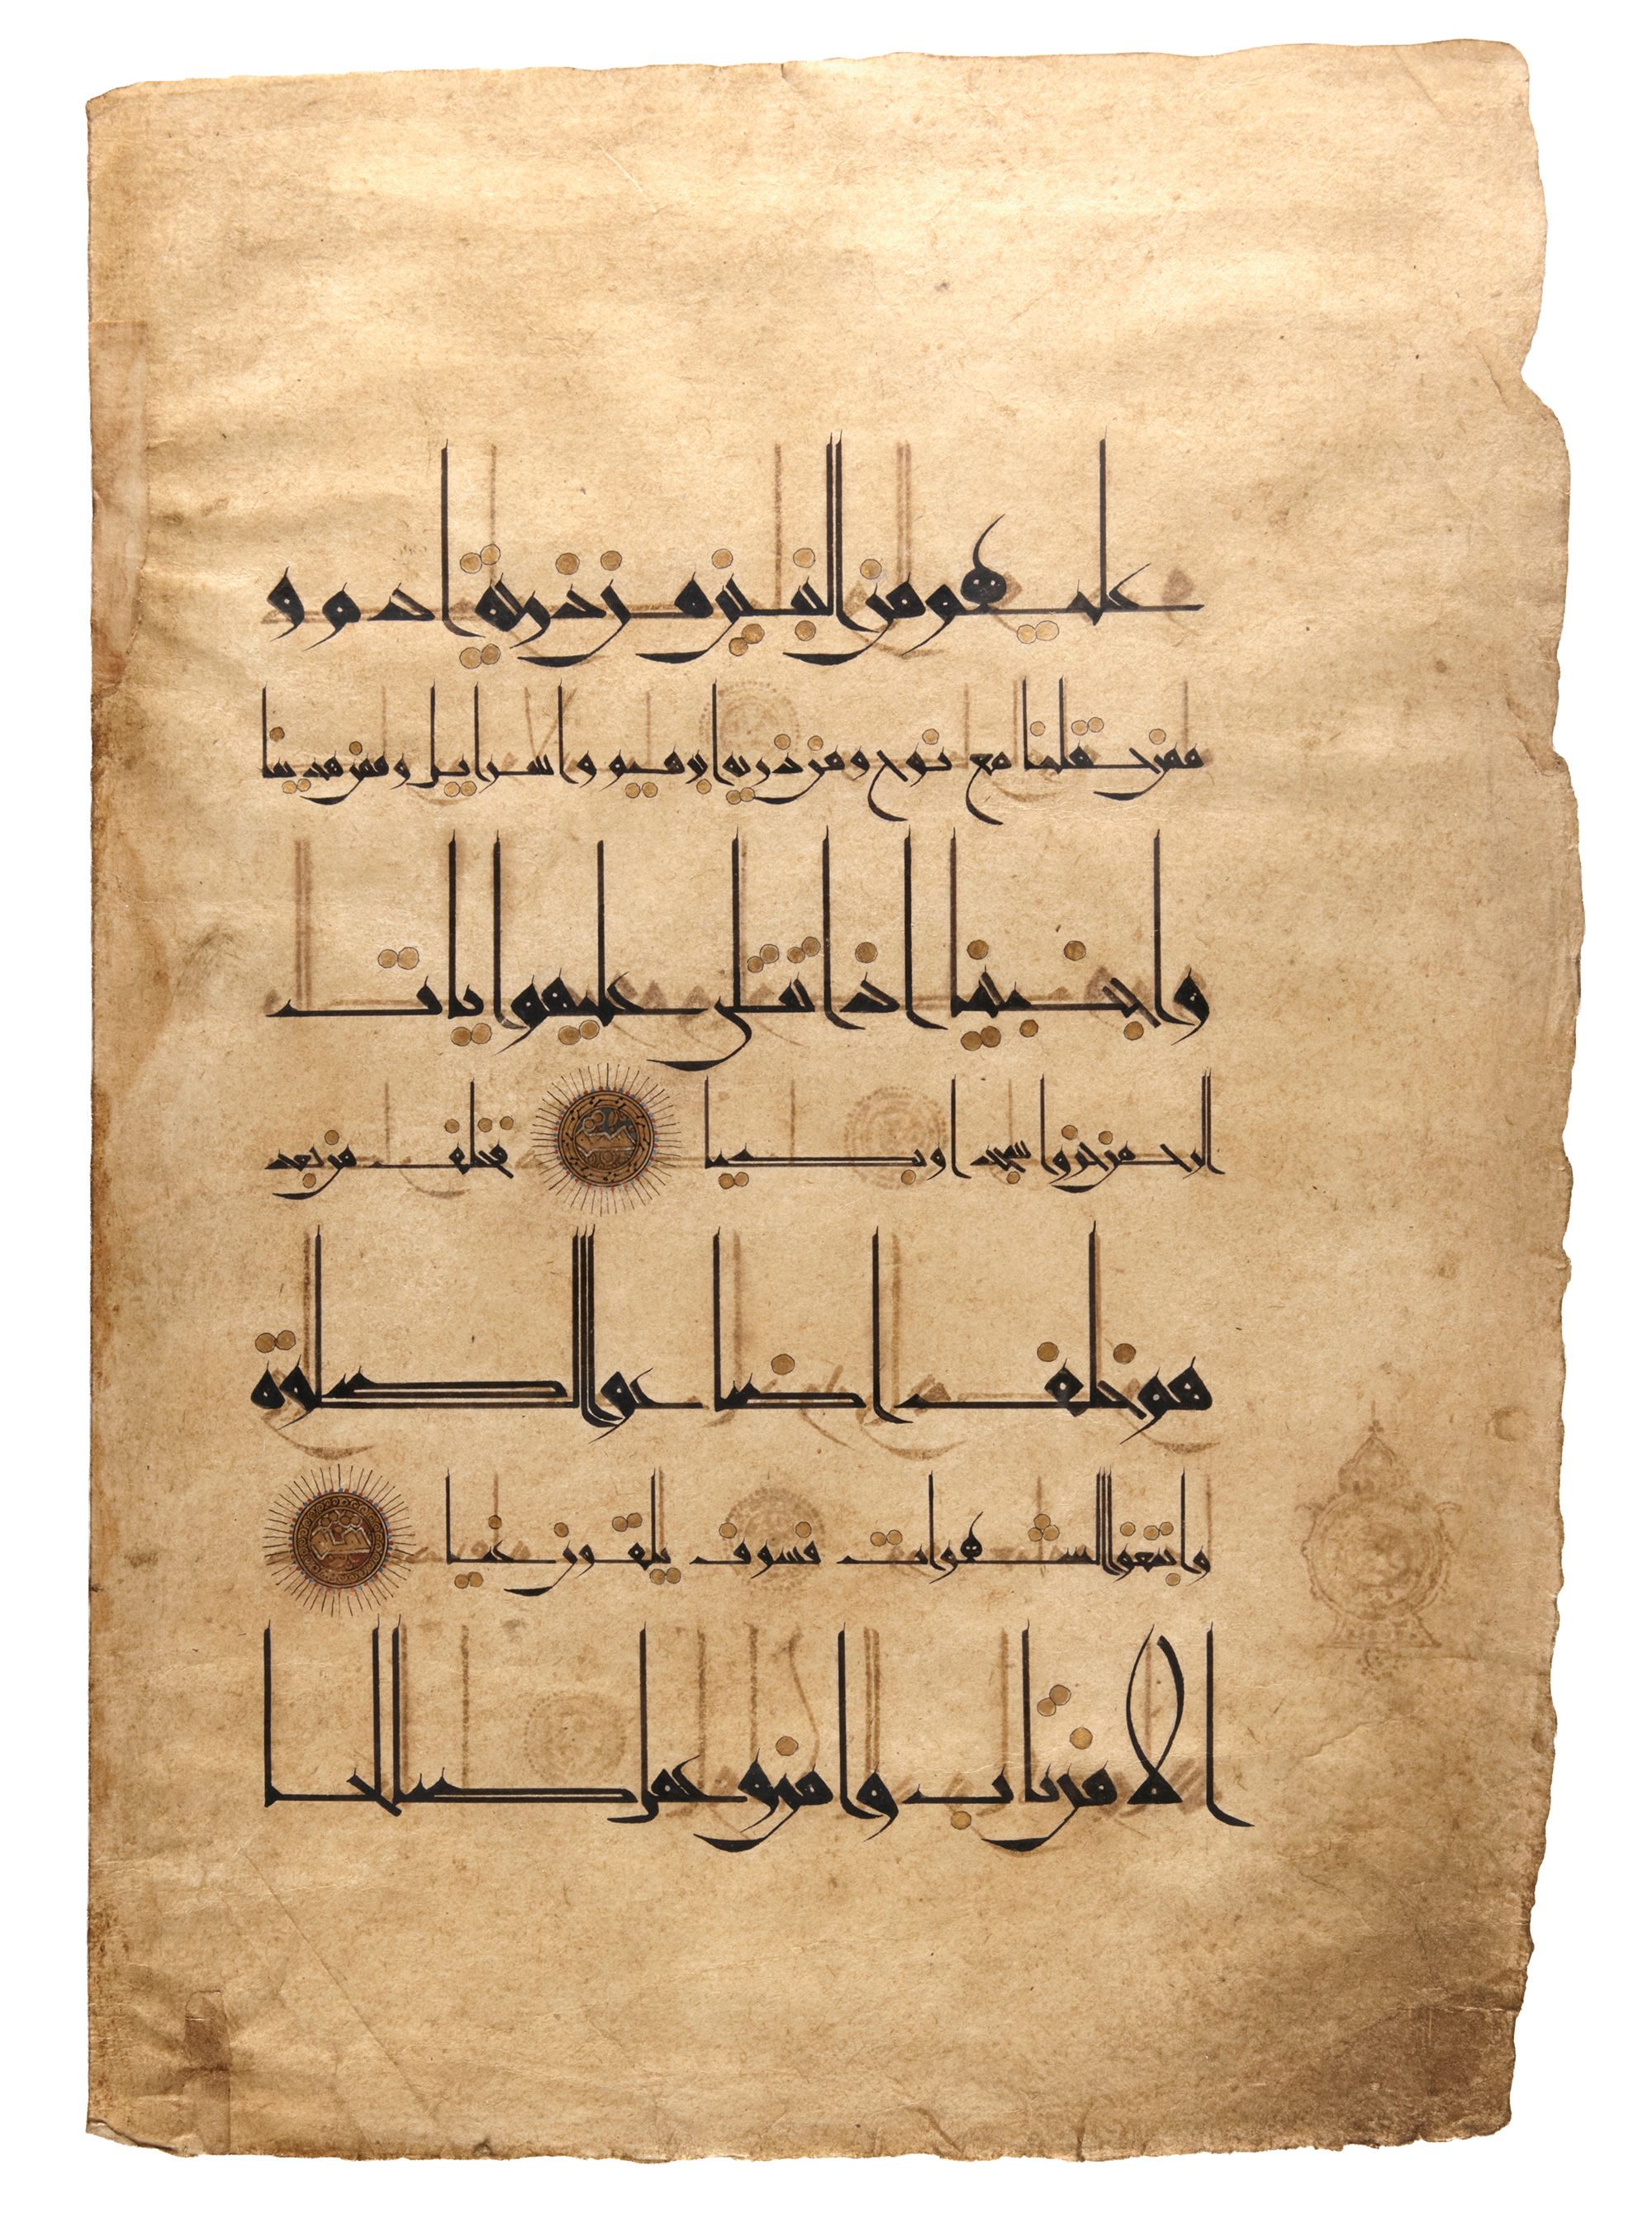 عليهم من النبين من ذرية ادم و
ممن حملنا مع نوح ومن ذرية ابرهيم واسرايل وممن هدينا
واجتبينا اذا تتلى عليهم ايات
الرحمن خروا سجدا وبكيا فخلف من بعد
هم خلف اضاعوا الصلوة
واتبعوا الشهوات فسوف يلقون غيا
الا من تاب وامن وعمل صالحا